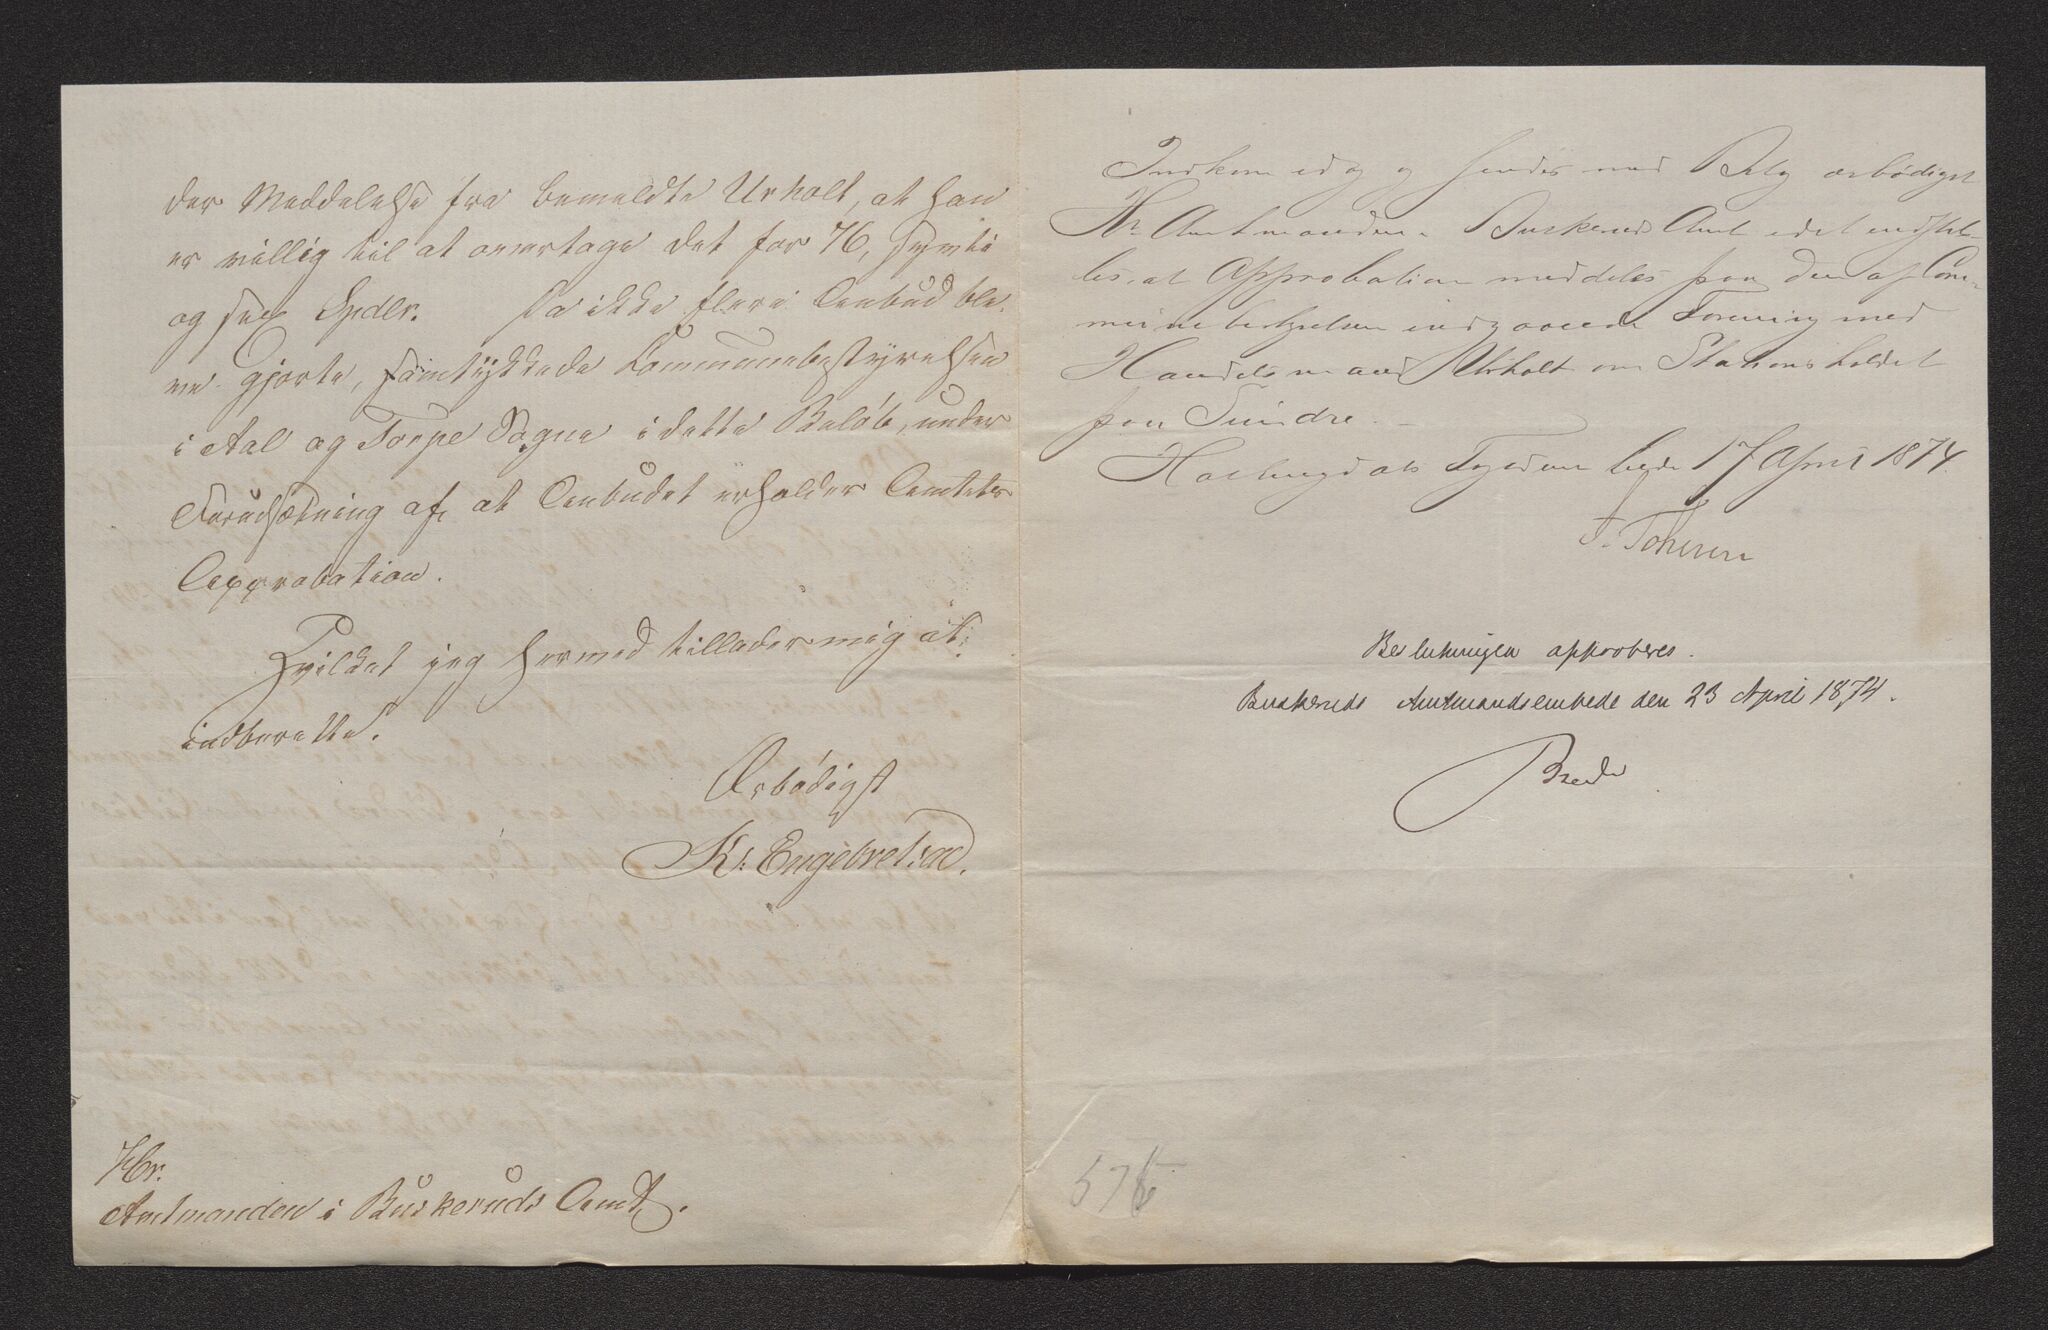 der Meddelelse fra bemeldte Urholt, at han
er villig til at overtage det for 76, sytti
og sex Spdlr. Da ikke flere Anbud ble-
ve gjorte, samtykkede Kommunebestyrelsen
i Aal og Torpe Sogne i dette Beløb, under
Forudsætning af, at Anbudet erholder Amtets
Approbation.
Hvilket jeg herved tillader mig at
indberette.
Ærbødigst
K. Engebretsen.
Hr.
Amtmanden i Buskeruds Amt.
Indkom idag og sendes med Bilag ærbødigst
Hr Amtmanden i Buskeruds Amt idet indstil-
les, at Approbation meddeles paa den af Com-
munebestyrelsen indgaaede Forening med
Handelsmand Urholt om Stationsholdet
paa Sundre.
Hallingdals Fogderi 17 April 1874.
Beslutningen approberes.
Buskeruds Amtmandsembede den 23 April 1874.
Breda
576